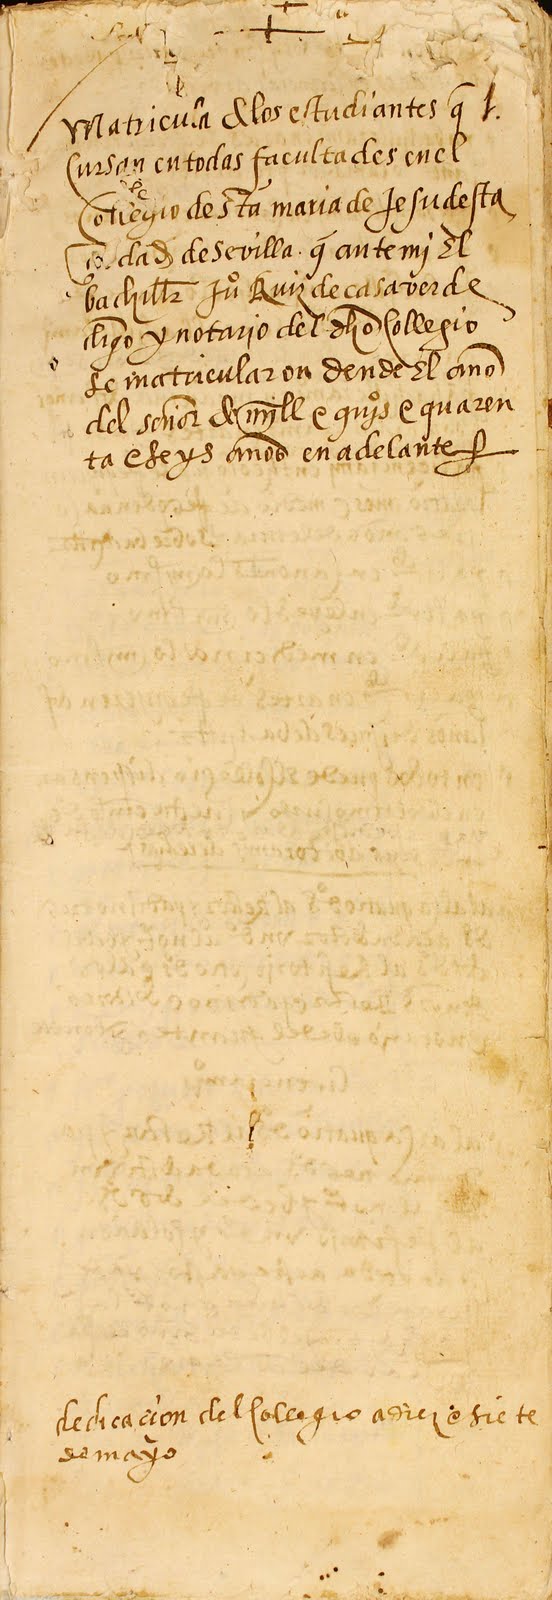 matricula de los estudiantes q̃
Cursan en todas facultades en el
Collegio de sta maria de Jesu desta
cibdad de sevilla. q̃ ante mj El
bachiller Juº Ruiz de casaverde
clrigo y notario del dho Collegio
se matricularon dende El año
del señor de mjll e qujºs e quaren
ta e seys años en adelante
dedicacion del Collegio a diez e siete
de mayo